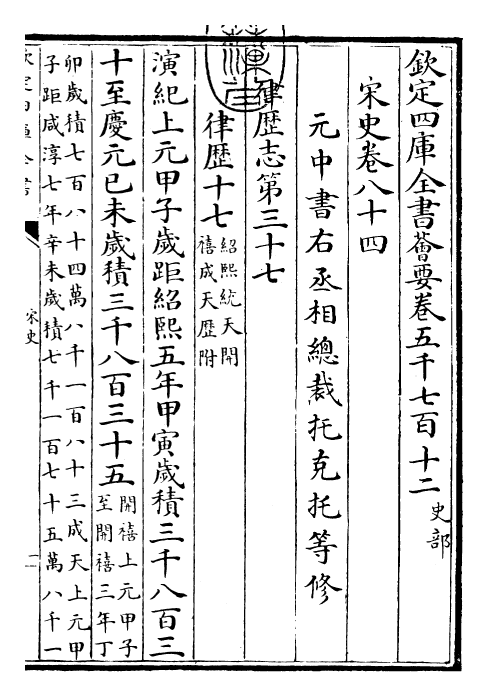 欽定四庫全書薈要卷五千七百十二 史部
宋史卷八十四
元中書右丞相總裁托克托等修
律歷志第三十七
律歷十七 紹熙統天開
禧成天歷附
演紀上元甲子歲距紹熙五年甲寅歲積三千八百三
十至慶元己未歲積三千八百三十五 開禧上元甲子
至開禧三年丁
卯歲積七百八十四萬八千一百八十三成天上元甲
子距咸淳七年辛未歲積七千一百七十五萬八千一
欽定四庫全書
宋史